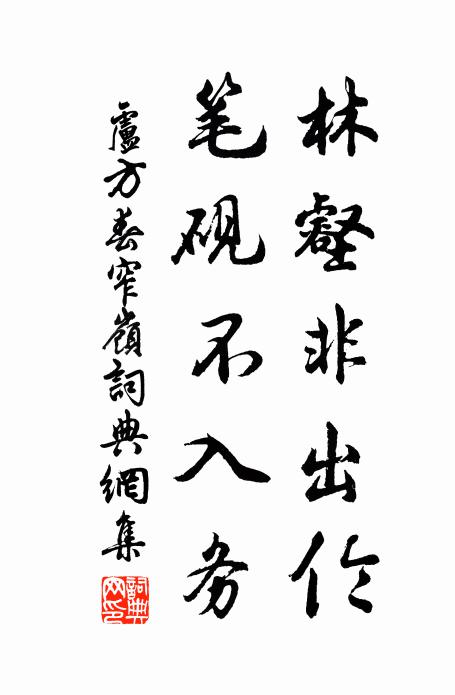 林壑非出伦
笔砚不入务
盧方春窄嶺詞典網集
詞典
网印